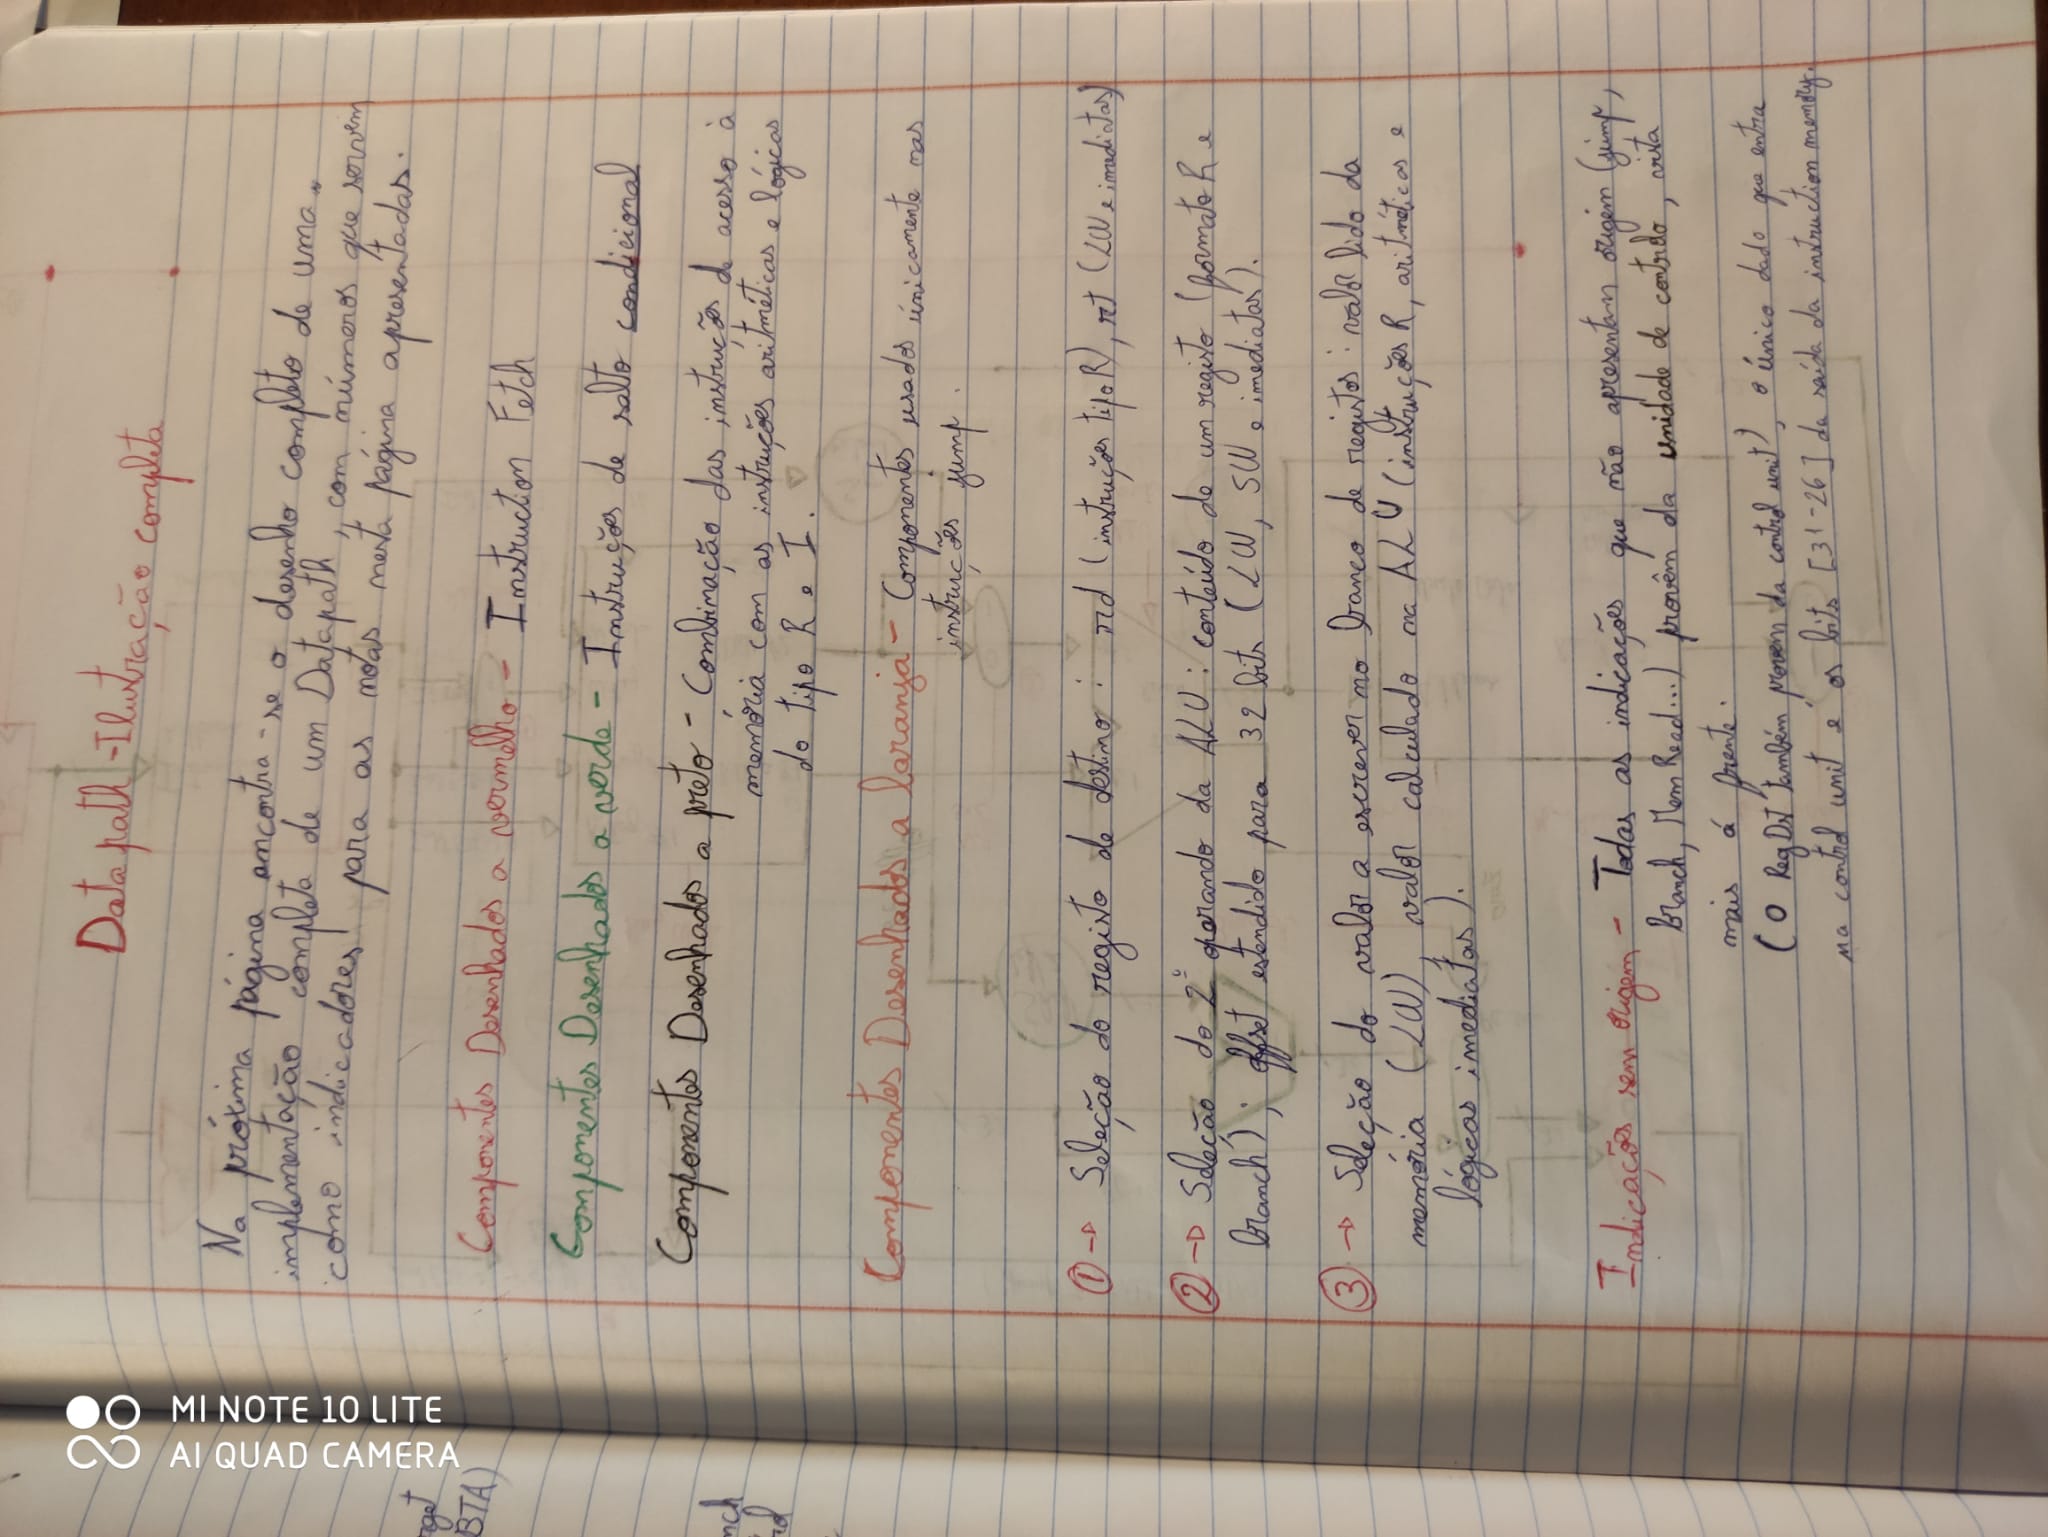 Datapath - Ilustração completa
Na próxima página encontra-se o desenho completo de uma
implementação completa de um Datapath, com números que servem
como indicadores para as notas nesta página apresentadas.
Componentes Desenhados a vermelho - Instruction Fetch
Componentes Desenhados a verde - Instruções de salto condicional
Componentes Desenhados a preto - Combinação das instruções de acesso à
memória com as instruções aritméticas e lógicas
do tipo R e I.
Componentes Desenhados a laranja - Componentes usados únicamente nas
instruções jump.
① → Seleção do registo de destino: rd (instruções tipo R), rt (LW e imediatas)
② → Seleção do 2º operando da ALU: conteúdo de um registo (formato R e
branch); offset estendido para 32 bits (LW, SW e imediatas).
③ → Seleção do valor a escrever no banco de registos: valor lido da
memória (LW), valor calculado na ALU (instruções R, aritméticas e
lógicas imediatas).
Indicações sem origem - Todas as indicações que não apresentam origem (jump,
Branch, Mem Read...) provêm da unidade de controlo, vista
mais á frente.
(O RegDst também provem da control unit), o único dado que entra
na control unit é os bits [31-26] da saída da instruction memory.
rget
BTA)
nch
MI NOTE 10 LITE
AI QUAD CAMERA